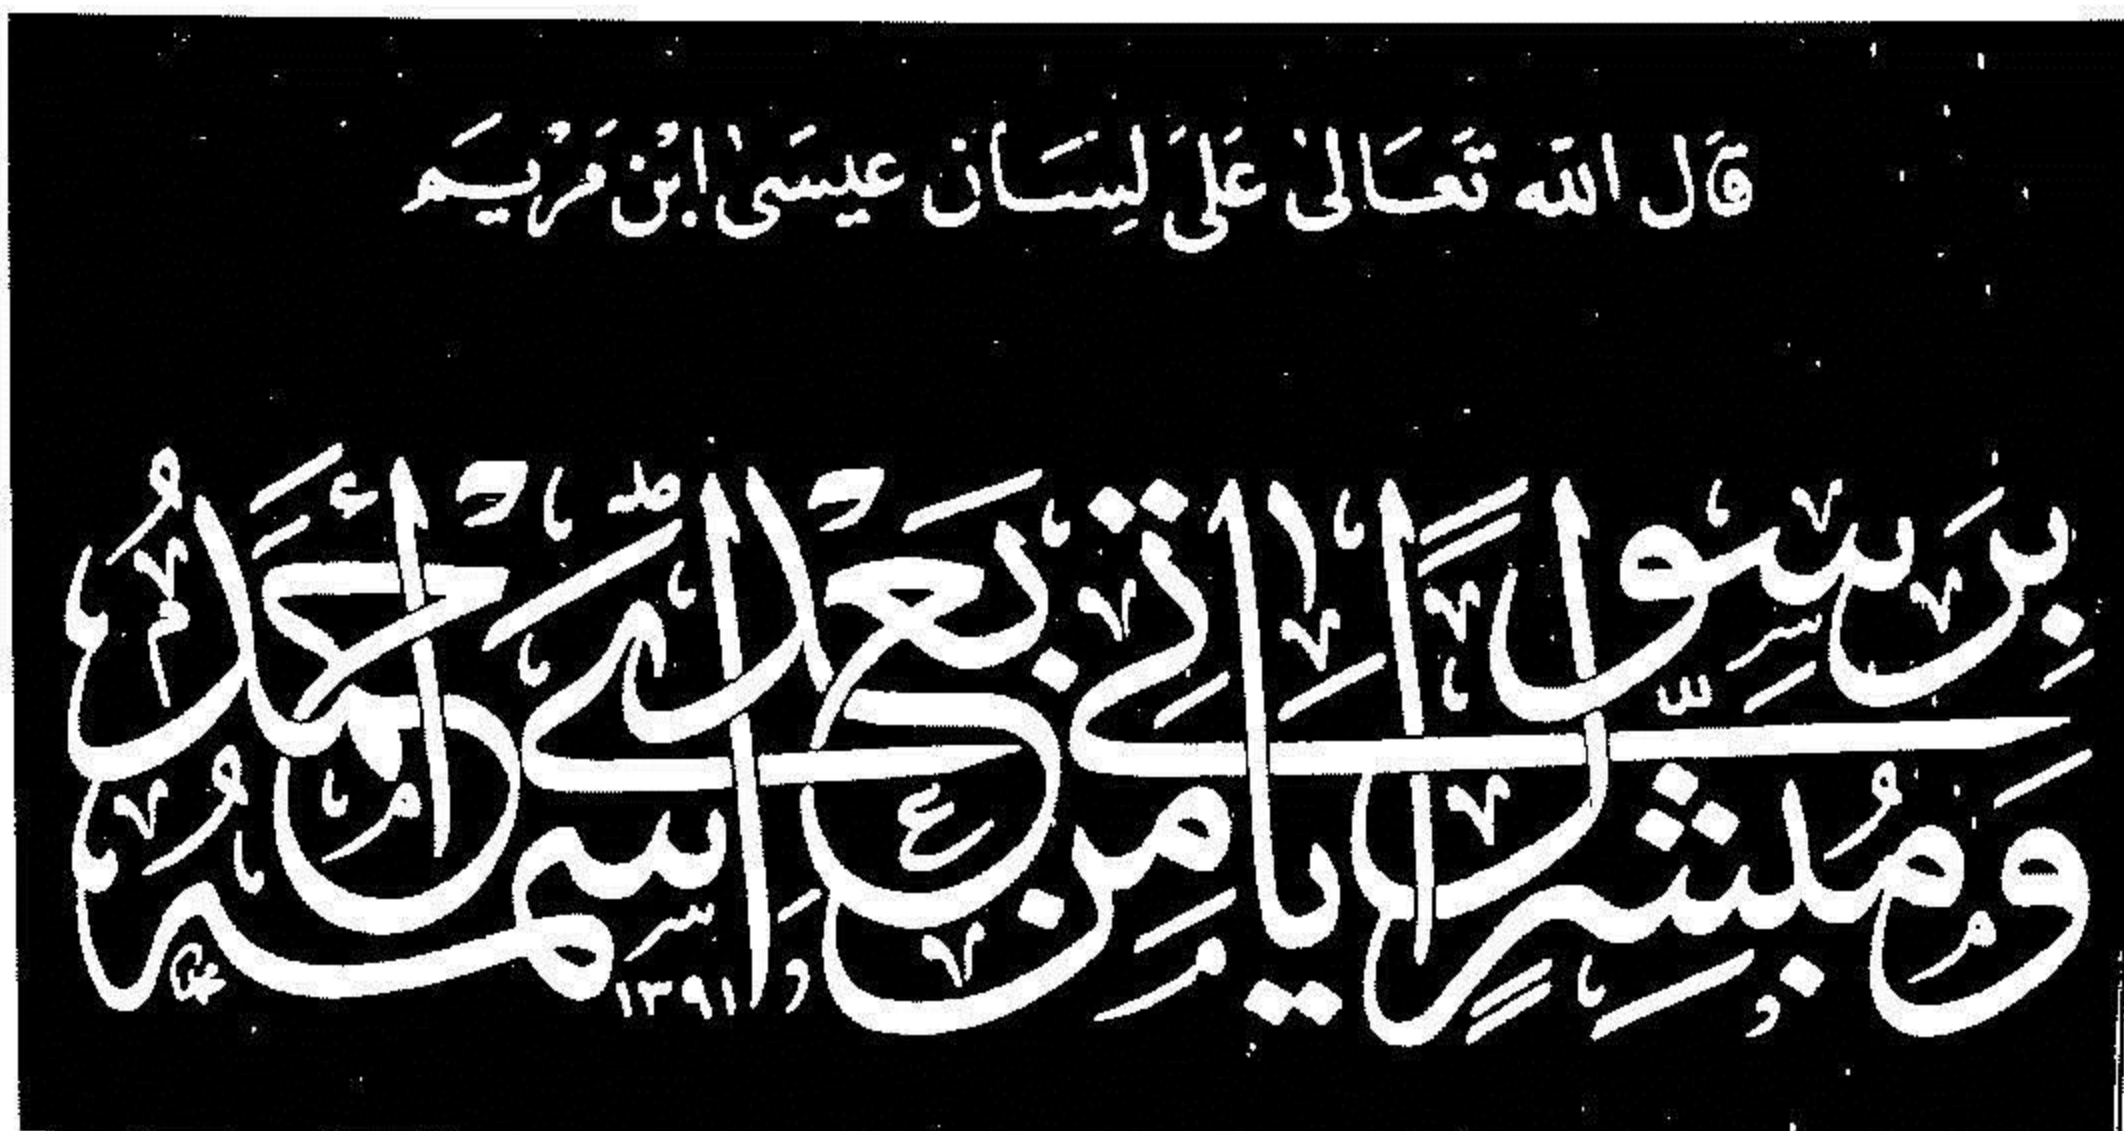 قَال الله تَعَالىٰ عَلىَ لِسَان عيسَىٰ ابْن مَرْيَم
وَمُبَشِّرًا بِرَسُولٍ يَأتِي مِنْ بَعْدِي اسْمُهُ أَحْمَدُ
١٣٩١